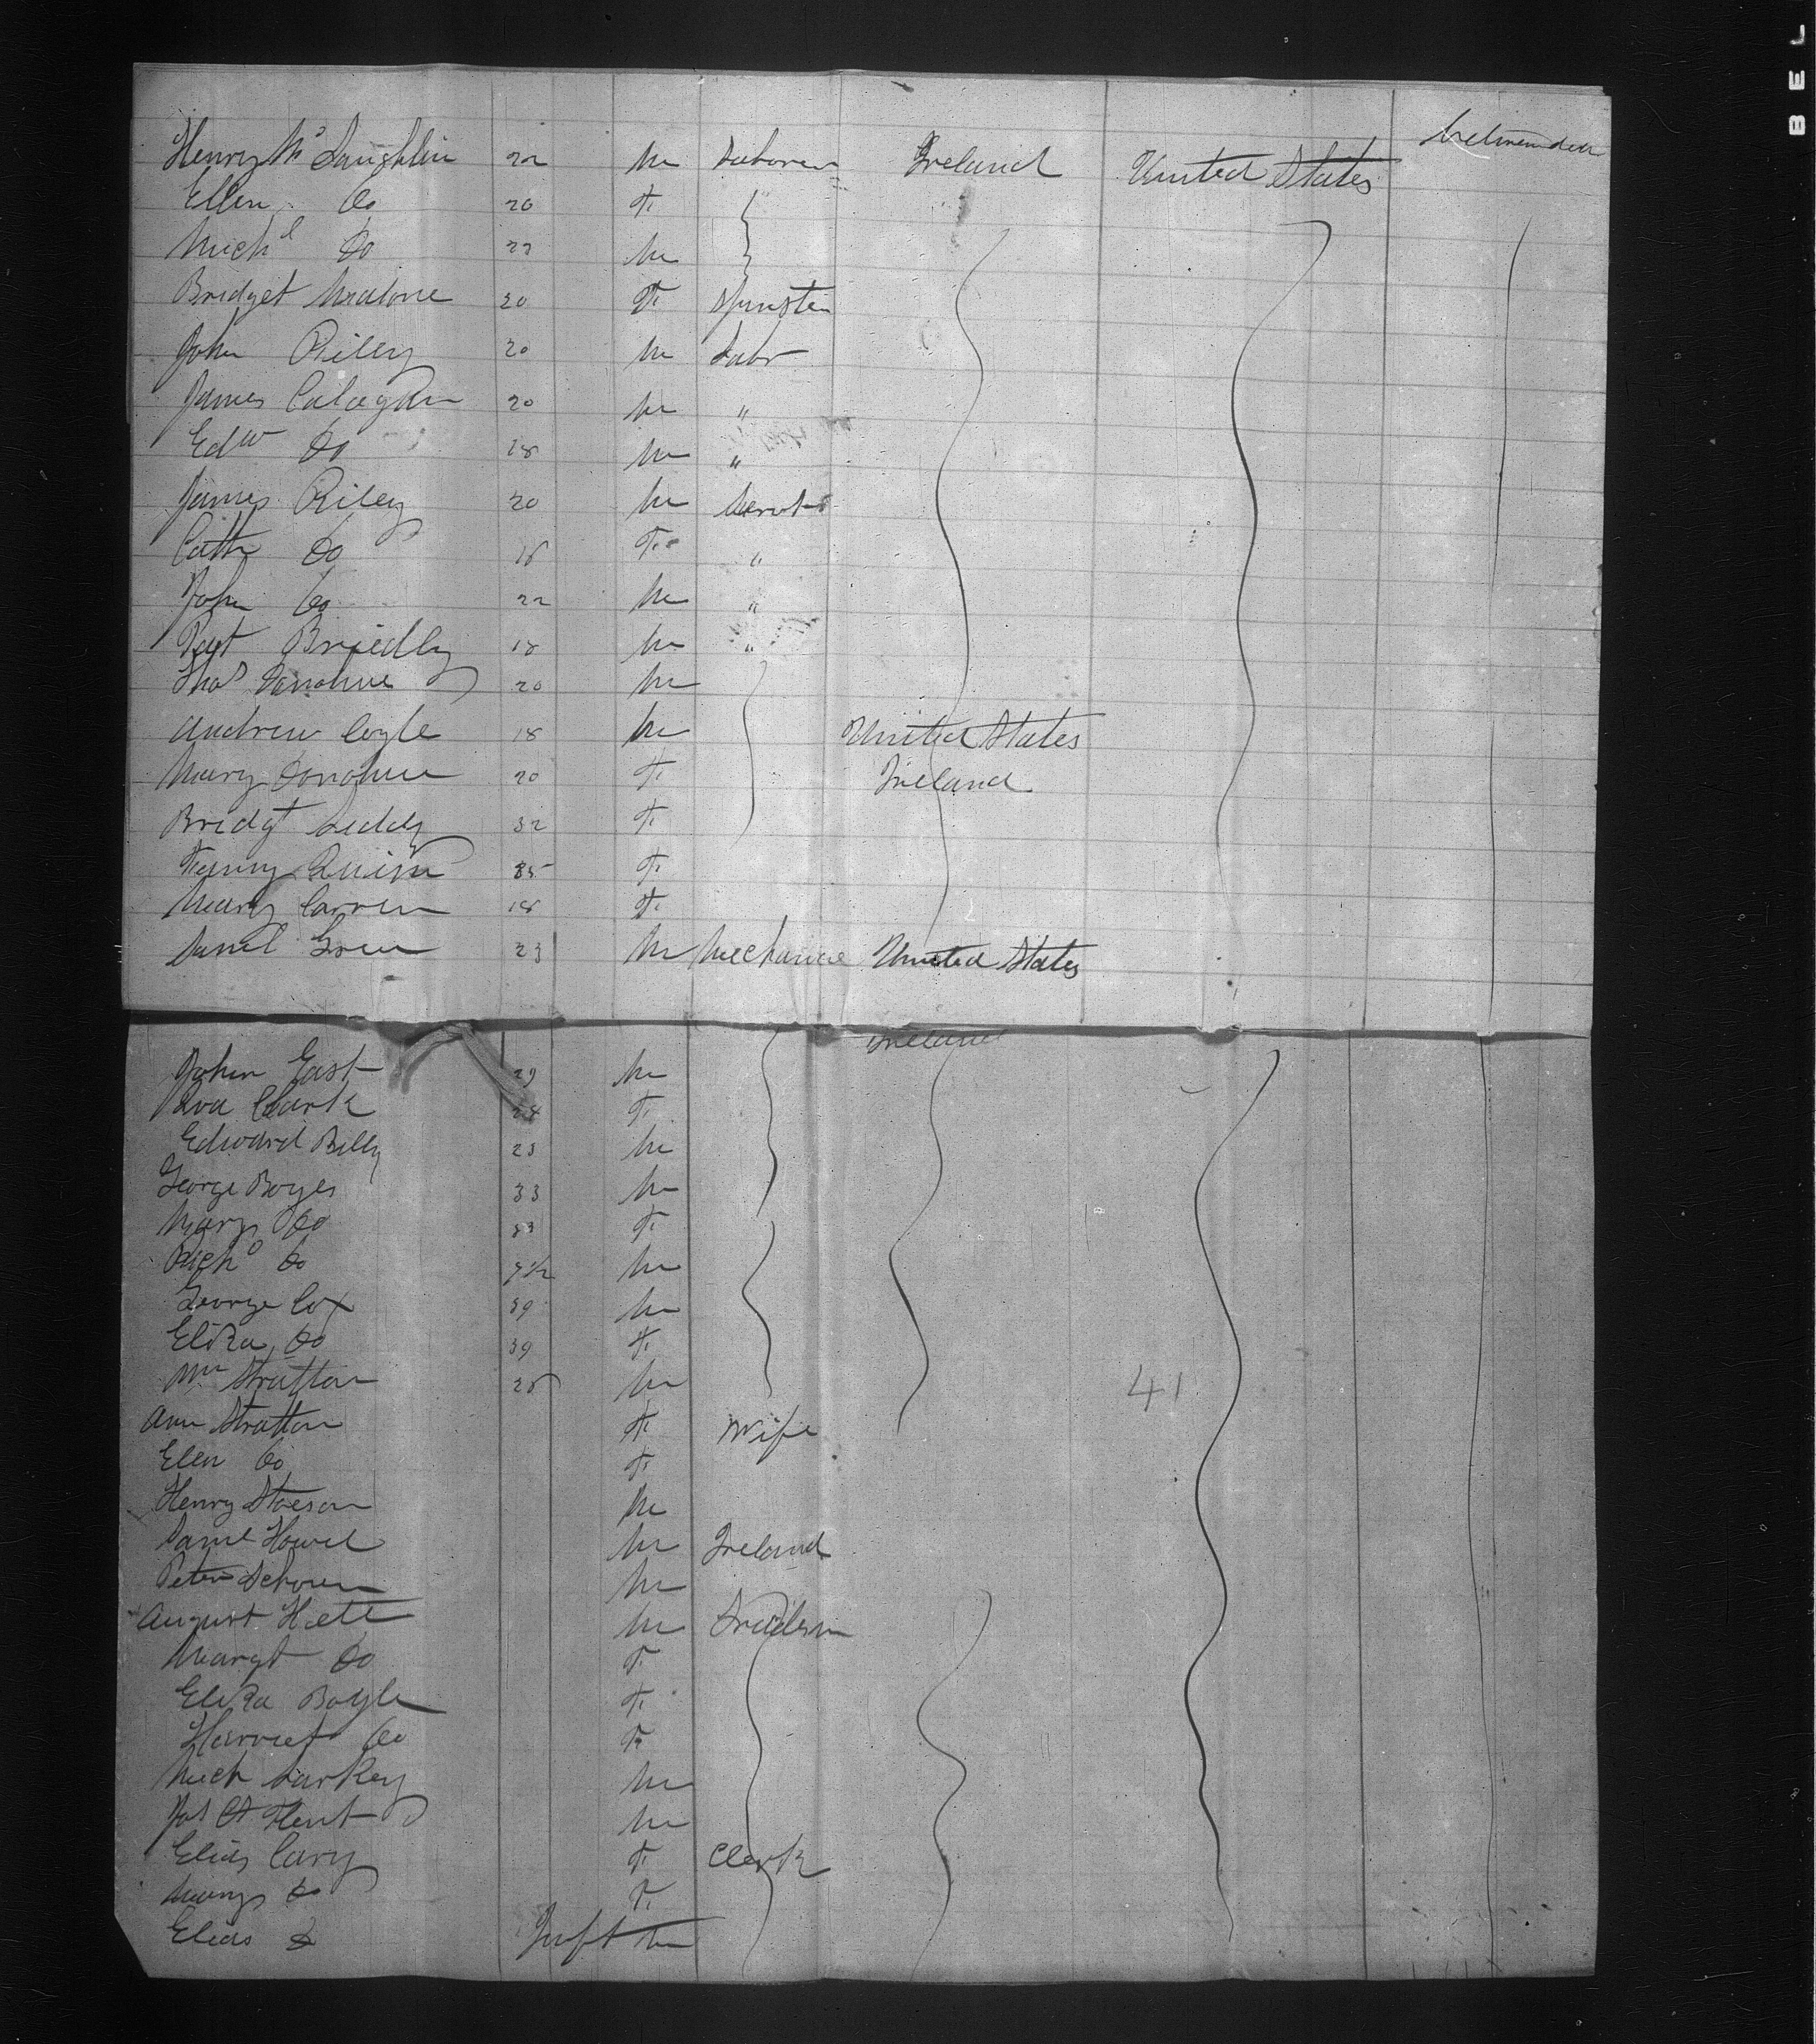 Henry Mc Laughlin 22 M Laborer Ireland United States
Ellen Do 20 F
Michl Do 22 M
Bridget Malone 20 F Spinster
John Riley 20 M Labr
James Calagan 20 M "
Edw Do 18 M "
James Riley 20 M Servt
Cath Do 18 F "
John Do 22 M "
Pat Briedly 18 M "
Thos Donohue 20 M
Andrew Coyle 18 M United States
Mary Donohue 20 F Ireland
Bridgt Leddy 32 F
Fanny Quinn 35 F
Mary Carren 18 F
Danl Green 23 M Mechanic United States
Ireland
John East 29 M
Clark F
Edward Billy 23 M
George Boyes 33 M
Mary Do 33 F
Richd Do M
George Cox 39 M
Eliza Do 39 F
Wm Stratton 28 M 41
Ann Stratton F Wife
Ellen Do F
Henry M
Danl Howel M Ireland
Peter M
August M
Margt Do F
Eliza Boyle F
Harriet Do F
Mich Larkey M
Jas Flent M
Elias Cary F Clerk
Mary Do F
Elias Do Inft M
BEL